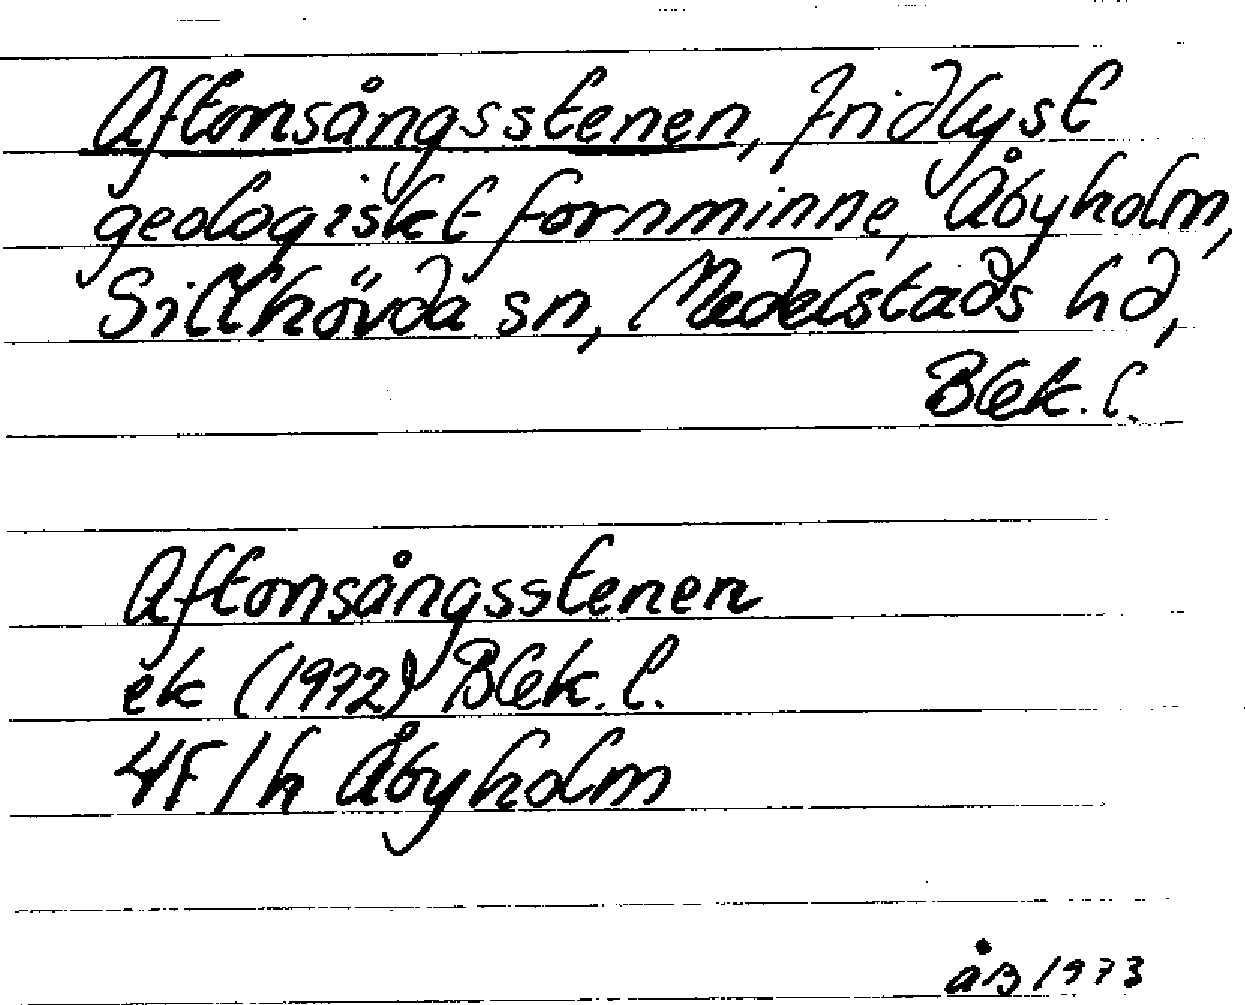 Aftonsångsstenen, fridlyst
geologiskt fornminne, Åbyholm,
Sillhövda sn, Medelstads hd,
Blek. l.
Aftonsångsstenen
ek (1972) Blek. l.
4F/h Åbyholm
åB 1973